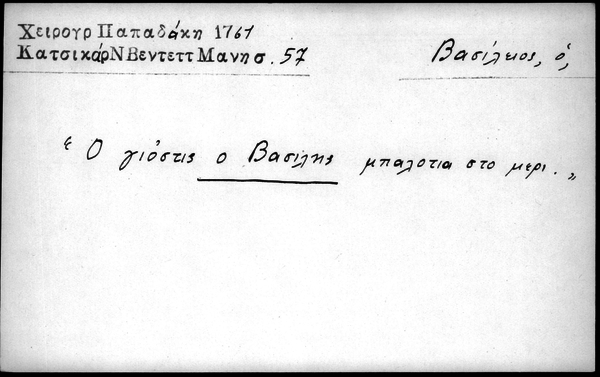 Χειρογρ Παπαδάκη 1761
ΚατσικάρΝΒεντεττΜανησ. 57
Βασίλειος, ὁ,
"Ο γιόστις ο Βασίλης μπαλοτια στο μερι."